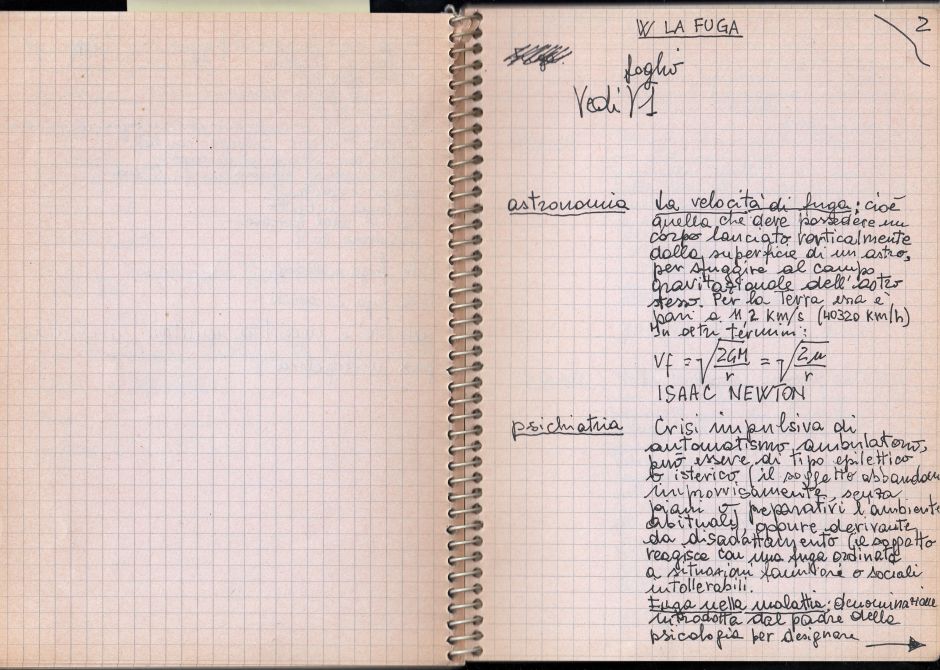 W LA FUGA
2
foglio
Vedi V1
astronomia
La velocità di fuga; cioè
quella che deve possedere un
corpo lanciato verticalmente
dalla superficie di un astro,
per sfuggire al campo
gravitazionale dell'astro
stesso. Per la Terra essa è
pari a 11,2 km/s (40320 km/h)
In altri termini:
Vf = √2GM/r = √2μ/r
ISAAC NEWTON
psichiatria
Crisi impulsiva di
automatismo ambulatorio,
può essere di tipo epilettico
o isterico (il soggetto abbandona
improvvisamente, senza
piani o preparativi l'ambiente
abituale), oppure derivante
da disadattamento (il soggetto
reagisce con una fuga ordinata
a situazioni familiari o sociali
intollerabili.
Fuga nella malattia: denominazione
introdotta dal padre della
psicologia per designare